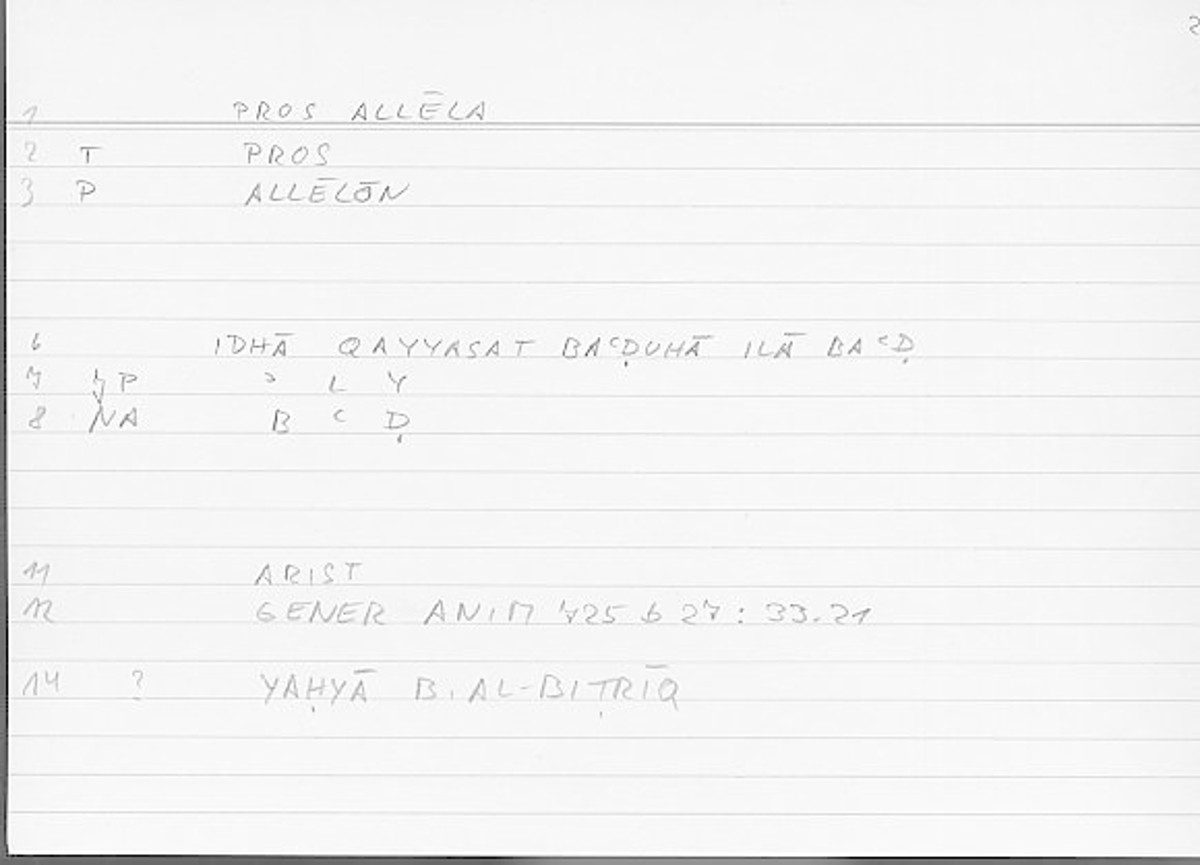 2
1 PROS ALLĒLA
2 T PROS
3 P ALLĒLŌN
6 IDHĀ QAYYASAT BAʿḌUHĀ ILĀ BAʿḌ
7 JP ʾ L Y
8 NA B ʿ Ḍ
11 ARIST
12 GENER ANIM 725 b 27 : 33.21
14 ? YAḤYĀ B. AL-BIṬRĪQ